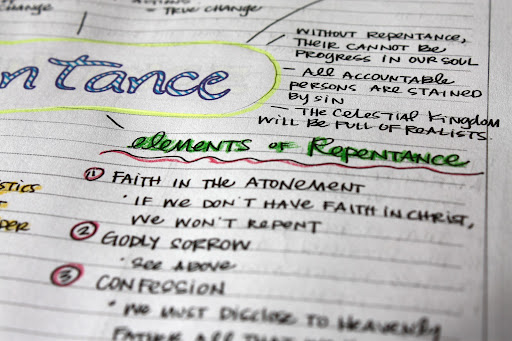 - TRUE CHANGE
CHANGE
WITHOUT REPENTANCE,
THEIR CANNOT BE
PROGRESS IN OUR SOUL
- ALL ACCOUNTABLE
PERSONS ARE STAINED
BY SIN
- THE CELESTIAL KINGDOM
WILL BE FULL OF REALISTS.
ntance
elements of Repentance
1 FAITH IN THE ATONEMENT
• IF WE DON'T HAVE FAITH IN CHRIST,
WE WON'T REPENT
2 GODLY SORROW
• SEE ABOVE
3 CONFESSION
• WE MUST DISCLOSE TO HEAVENLY
FATHER ALL THAT